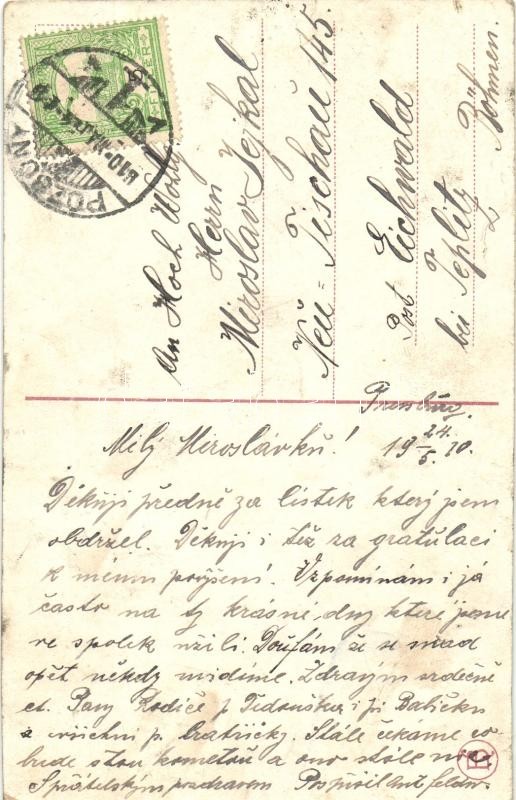 POZSONY
An Hoch Wohlg
Herrn
Miroslav Sejkal
Neu = Tischau 145.
Post Eichwald
bei Teplitz
Böhmen.
Pressburg
19 24/5. 10.
Milý Miroslávků!
Děkuji předně za lístek který jsem
obdržel. Děkuji i též za gratulaci
k mému povýšení. Vzpomínám i já
často na ty krásné dny které jsme
ve spolek užili. Doufám že se snad
opět někdy uvidíme. Zdravím srdečně
ct. Pány Rodiče p. i pí Babičku
a všichni p. bratříčky. Stále čekáme co
bude stou kometou a ono stále nic
S přátelským pozdravem Pospíšil Ant.